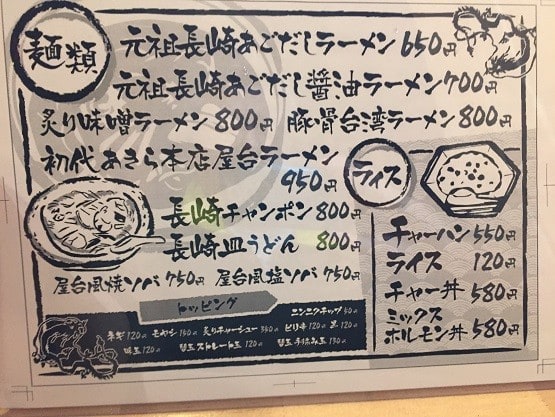 麺類
元祖長崎あごだしラーメン 650円
元祖長崎あごだし醤油ラーメン 700円
炙り味噌ラーメン 800円 豚骨台湾ラーメン 800円
初代あきら本店屋台ラーメン
950円
長崎チャンポン 800円
長崎皿うどん 800円
屋台風焼ソバ 750円 屋台風塩ソバ 750円
ライス
チャーハン 550円
ライス 120円
チャー丼 580円
ミックス
ホルモン丼 580円
トッピング
ニンニクチップ 50円
ネギ 120円 モヤシ 150円 炙りチャーシュー 350円 ピリ辛 120円
味玉 120円 替玉ストレート玉 120円 替玉手もみ玉 130円